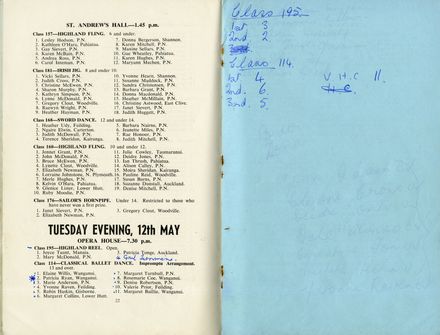 ST. ANDREW'S HALL—1.45 p.m.
Class 157—HIGHLAND FLING. 6 and under.
1. Lesley Hodson, P.N.
2. Kathleen O'Hara, Pahiatua.
3. Gay Sievert, P.N.
4. Karen McBain, P.N.
5. Andrea Ross, P.N.
6. Carol Jateman, P.N.
7. Donna Bergerson, Shannon.
8. Karen Mitchell, P.N.
9. Maxine Sellars, P.N.
10. Gae Wheatley, Pahiatua.
11. Karen Hughes, P.N.
12. Maryann Mechen, P.N.
Class 181—IRISH JIG. 8 and under 10.
1. Vicki Sellars, P.N.
2. Judith Cross, P.N.
3. Christine McKay, P.N.
4. Sharon Murphy, P.N.
5. Kathryn Simpson, P.N.
6. Lynne McDonald, P.N.
7. Gregory Clout, Woodville.
8. Raewyn Wright, P.N.
9. Heather Hayman, P.N.
10. Yvonne Hearn, Shannon.
11. Suzanne Madduck, P.N.
12. Sandra Christensen, P.N.
13. Barbara Grant, P.N.
14. Donna Macdonald, P.N.
15. Heather McMillan, P.N.
16. Christine Astwood, East Clive.
17. Janet Sievert, P.N.
18. Judith Haggett, P.N.
Class 168—SWORD DANCE. 12 and under 14.
1. Heather Udy, Feilding.
2. Ngaire Elwin, Carterton.
3. Judith McDowall, P.N.
4. Terence Sheridan, Kairanga.
5. Barbara Nairns, P.N.
6. Jeanette Miles, P.N.
7. Rae Honour, P.N.
8. Judith Mitchell, P.N.
Class 160—HIGHLAND FLING. 10 and under 12.
1. Jonnet Grant, P.N.
2. John McDonald, P.N.
3. Bruce McEwan, P.N.
4. Lynette Clout, Woodville.
5. Elizabeth Newman, P.N.
6. Lorraine Johnstone, N. Plymouth.
7. Merle Hughes, P.N.
8. Kelvin O'Hara, Pahiatua.
9. Glenice Lister, Lower Hutt.
10. Ruby Moodie, P.N.
11. Julie Cowley, Taumarunui.
12. Deidry Jones, P.N.
13. Ian Thrush, Pahiatua.
14. Alison Calley, P.N.
15. Moira Sheridan, Kairanga.
16. Pauline Reid, Woodville.
17. Susan Burns, P.N.
18. Suzanne Donstall, Auckland.
19. Denise Mitchell, P.N.
Class 176—SAILOR'S HORNPIPE. Under 14. Restricted to those who
have never won a first prize.
1. Janet Sievert, P.N.
2. Elizabeth Newman, P.N.
3. Gregory Clout, Woodville.
TUESDAY EVENING, 12th MAY
OPERA HOUSE—7.30 p.m.
Class 195—HIGHLAND REEL. Open.
1. Joyce Taunt, Manaia.
2. Mary McDonald, P.N.
3. Patricia Tonge, Auckland.
Class 114—CLASSICAL BALLET DANCE. Impromptu Arrangement.
13 and over.
1. Elaine Willis, Wanganui.
2. Patricia Ryan, Wanganui.
3. Marie Anderson, P.N.
4. Yvonne Raven, Feilding.
5. Robin Haskin, Gisborne.
6. Margaret Collins, Lower Hutt.
7. Margaret Turnbull, P.N.
8. Rosemarie Coe, Wanganui.
9. Denise Robertson, P.N.
10. Valerie Prior, Feilding.
11. Margaret Baillie, Wanganui.
22
Class 195
1st 3
2nd 2.
Class 114.
1st 4. V H C 11.
2nd. 6. H.C.
3rd. 5.